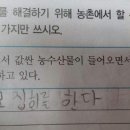 를 해결하기 위해 농촌에서 할
가지만 쓰시오.
서 값싼 농수산물이 들어오면서
하고 있다.
집회를 한다